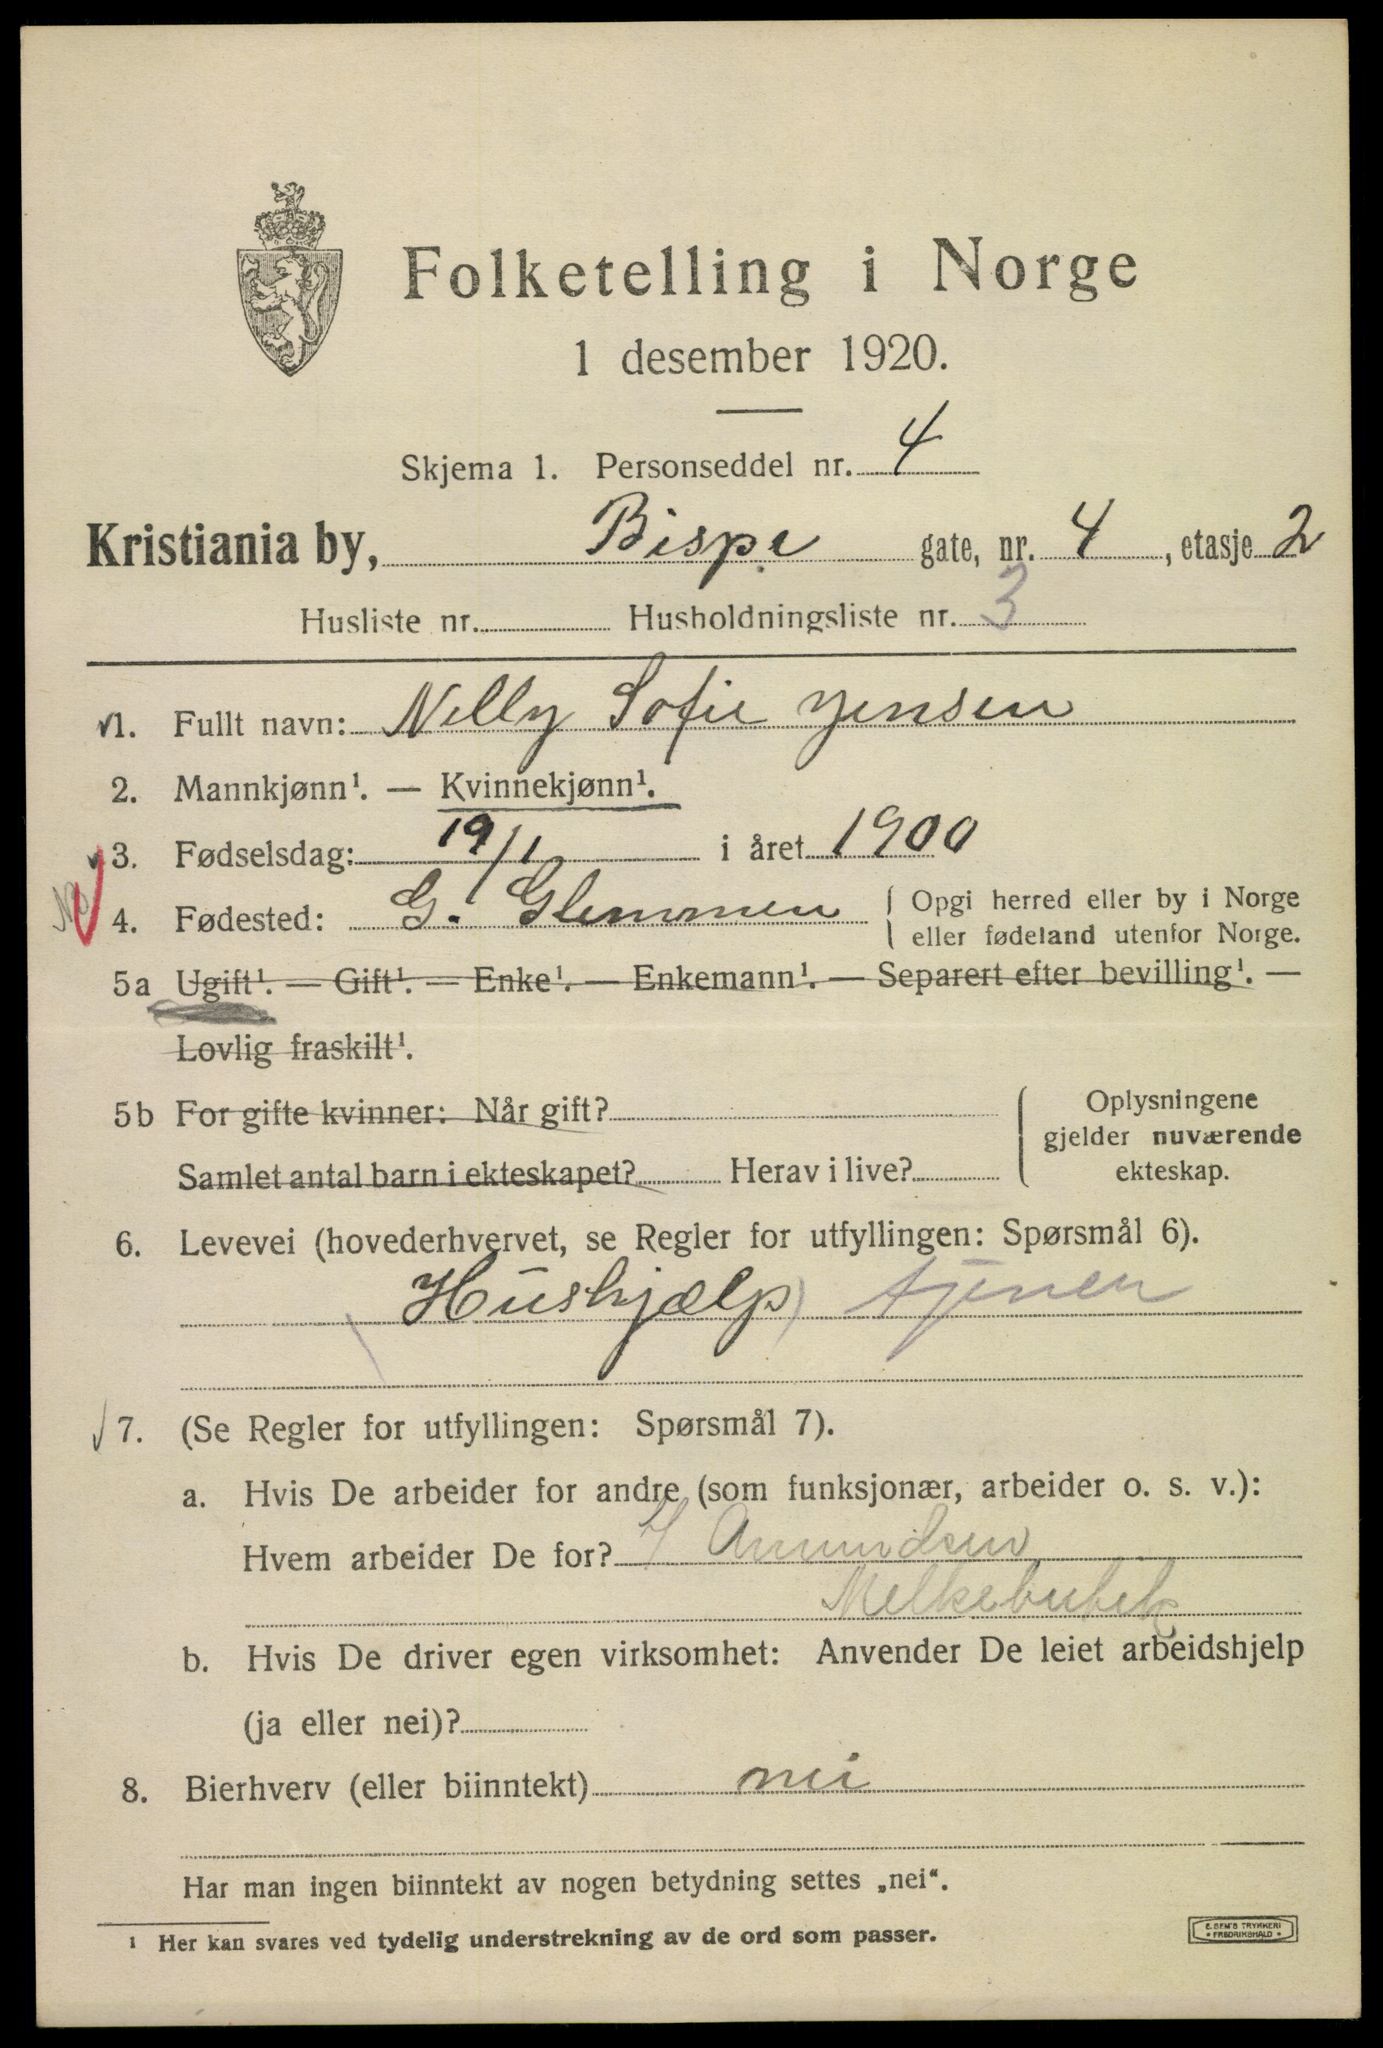 Folketelling i Norge
1 desember 1920.
Skjema 1. Personseddel nr. 4
Kristiania by, Bispe gate, nr. 4, etasje 2
Husliste nr. Husholdningsliste nr. 3
1. Fullt navn: Nelly Sofie Jensen
2. Mannkjønn¹. — Kvinnekjønn¹.
3. Fødselsdag: 19/1 i året 1900
4. Fødested: G. Glemmen { Opgi herred eller by i Norge
eller fødeland utenfor Norge.
5a Ugift¹. — Gift¹. — Enke¹. — Enkemann¹. — Separert efter bevilling¹. —
Lovlig fraskilt¹.
5b For gifte kvinner: Når gift? { Oplysningene
gjelder nuværende
Samlet antal barn i ekteskapet? Herav i live? ekteskap.
6. Levevei (hovederhvervet, se Regler for utfyllingen: Spørsmål 6).
(Hushjælp) tjener
7. (Se Regler for utfyllingen: Spørsmål 7).
a. Hvis De arbeider for andre (som funksjonær, arbeider o. s. v.):
Hvem arbeider De for? Amundsen
Melkebutik
b. Hvis De driver egen virksomhet: Anvender De leiet arbeidshjelp
(ja eller nei)?
8. Bierhverv (eller biinntekt) nei
Har man ingen biinntekt av nogen betydning settes „nei“.
¹ Her kan svares ved tydelig understrekning av de ord som passer.
E. SEM'S TRYKKERI
* FREDRIKSHALD *